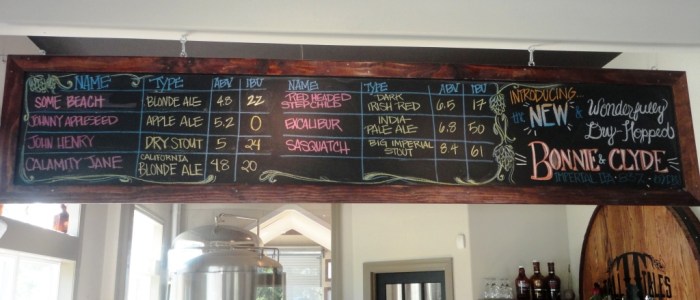 NAME TYPE ABV IBU
SOME BEACH BLONDE ALE 4.8 22
JOHNNY APPLESEED APPLE ALE 5.2 0
JOHN HENRY DRY STOUT 5 24
CALAMITY JANE CALIFORNIA BLONDE ALE 4.8 20
NAME TYPE ABV IBU
RED HEADED STEPCHILD DARK IRISH RED 6.5 17
EXCALIBUR INDIA PALE ALE 6.8 50
SASQUATCH BIG IMPERIAL STOUT 8.4 61
INTRODUCING
the NEW &
Wonderfully
Dry-Hopped
BONNIE & CLYDE
IMPERIAL IPA
TALL TALES